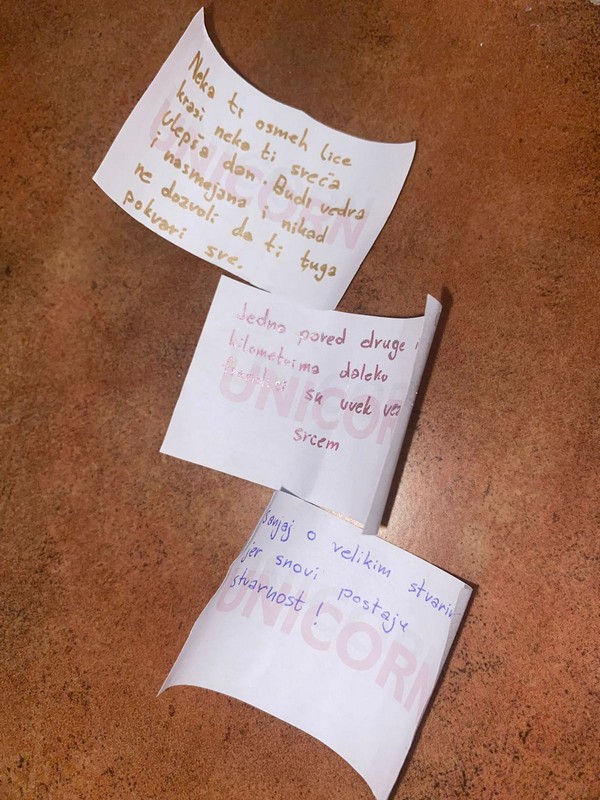 Neka ti osmeh lice
krasi neka ti sreća
ulepša dan. Budi vedra
i nasmejana i nikad
ne dozvoli da ti tuga
pokvari sve.
UNICORN
Jedna pored druge i
kilometrima daleko
su uvek vez
srcem
UNICOR
Sanjaj o velikim stvarim
jer snovi postaju
stvarnost!
UNICORN